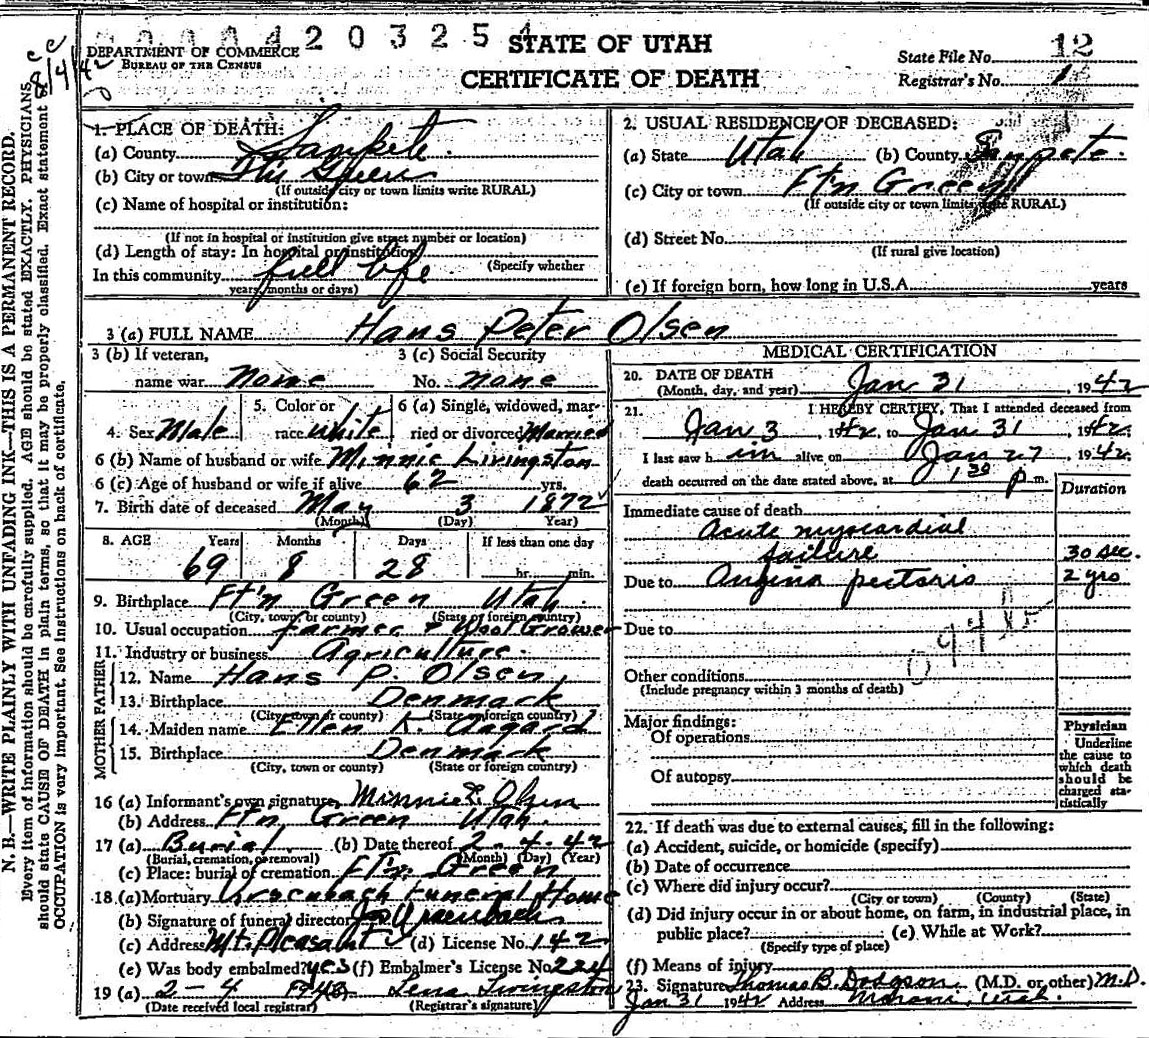 0000420325
DEPARTMENT OF COMMERCE
BUREAU OF THE CENSUS
STATE OF UTAH
CERTIFICATE OF DEATH
State File No. 12
Registrar's No. 1
N. B.—WRITE PLAINLY WITH UNFADING INK—THIS IS A PERMANENT RECORD.
Every item of information should be carefully supplied. AGE should be stated EXACTLY. PHYSICIANS
should state CAUSE OF DEATH in plain terms, so that it may be properly classified. Exact statement
OCCUPATION is very important. See instructions on back of certificate.
1. PLACE OF DEATH:
(a) County Sanpete
(b) City or town
(If outside city or town limits write RURAL)
(c) Name of hospital or institution:
(If not in hospital or institution give street number or location)
(d) Length of stay: In hospital or institution
(Specify whether
In this community full life
years, months or days)
2. USUAL RESIDENCE OF DECEASED:
(a) State Utah (b) County Sanpete.
(c) City or town Ft'n Green
(If outside city or town limits write RURAL)
(d) Street No.
(If rural give location)
(e) If foreign born, how long in U.S.A. years
3 (a) FULL NAME Hans Peter Olsen
3 (b) If veteran,
name war None
3 (c) Social Security
No. none
4. Sex Male
5. Color or
race White
6 (a) Single, widowed, mar-
ried or divorced Married
6 (b) Name of husband or wife Minnie Livingston
6 (c) Age of husband or wife if alive 62 yrs.
7. Birth date of deceased May 3 1872
(Month) (Day) Year)
8. AGE Years Months Days If less than one day
69 8 28 hr. min.
9. Birthplace Ft'n Green Utah.
(City, town, or county) (State or foreign country)
10. Usual occupation Farmer & Wool Grower
11. Industry or business Agriculture.
FATHER
12. Name Hans P. Olsen
13. Birthplace Denmark
(City, town or county) (State or foreign country)
MOTHER
14. Maiden name Ellen K. Aagard
15. Birthplace Denmark
(City, town or county) (State or foreign country)
16 (a) Informant's own signature Minnie L. Olsen
(b) Address Ft'n Green Utah.
17 (a) Burial. (b) Date thereof 2.4.42
(Burial, cremation, or removal) (Month) (Day) (Year)
(c) Place: burial of cremation Ft'n. Green
18 (a) Mortuary Ursenbach Funeral Home
(b) Signature of funeral director Ursenbach
(c) Address Mt. Pleasant (d) License No. 142
(e) Was body embalmed? yes (f) Embalmer's License No. 224
19 (a) 2-4 Lena Livingston
(Date received local registrar) (Registrar's signature)
MEDICAL CERTIFICATION
20. DATE OF DEATH
(Month, day, and year) Jan 31, 1942
21. I HEREBY CERTIFY, That I attended deceased from
Jan 3, 1942, to Jan 31, 1942,
I last saw him alive on Jan 27, 1942,
death occurred on the date stated above, at 1 30 p m.
Duration
Immediate cause of death
Acute myocardial
failure 30 sec.
Due to Angina pectoris 2 yrs
Due to
Other conditions
(Include pregnancy within 3 months of death)
Major findings:
Of operations
Of autopsy
Physician
Underline
the cause to
which death
should be
charged sta-
tistically
22. If death was due to external causes, fill in the following:
(a) Accident, suicide, or homicide (specify)
(b) Date of occurrence
(c) Where did injury occur?
(City or town) (County) (State)
(d) Did injury occur in or about home, on farm, in industrial place, in
public place? (e) While at Work?
(Specify type of place)
(f) Means of injury
23. Signature Thomas B. Dodgson (M.D. or other) M.D.
Jan 31 1942 Address Moroni, Utah.